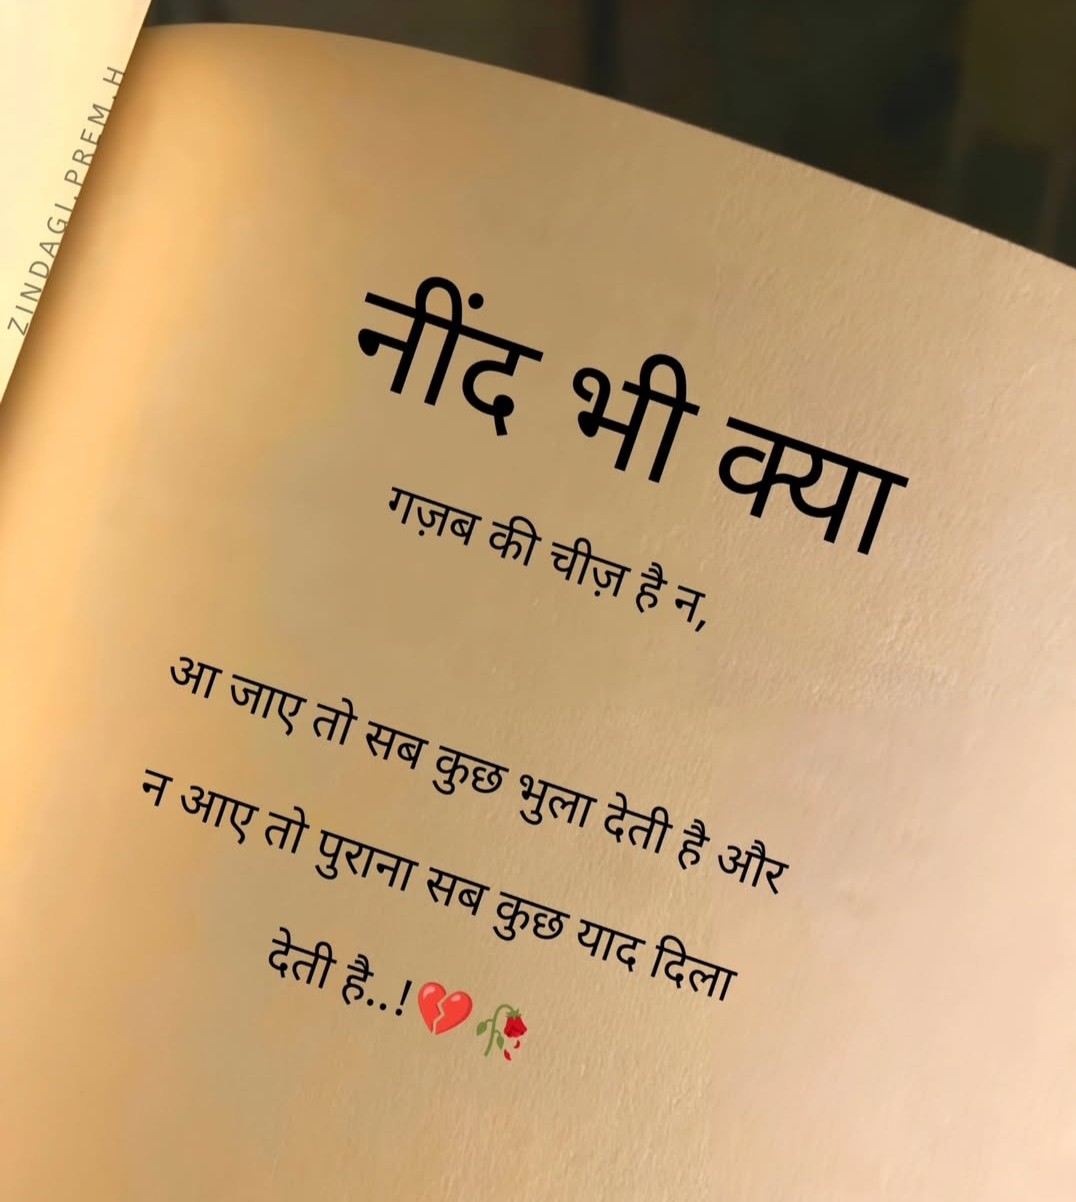 ZINDAGI.PREM.H
नींद भी क्या
गज़ब की चीज़ है न,
आ जाए तो सब कुछ भुला देती है और
न आए तो पुराना सब कुछ याद दिला
देती है..!💔🥀